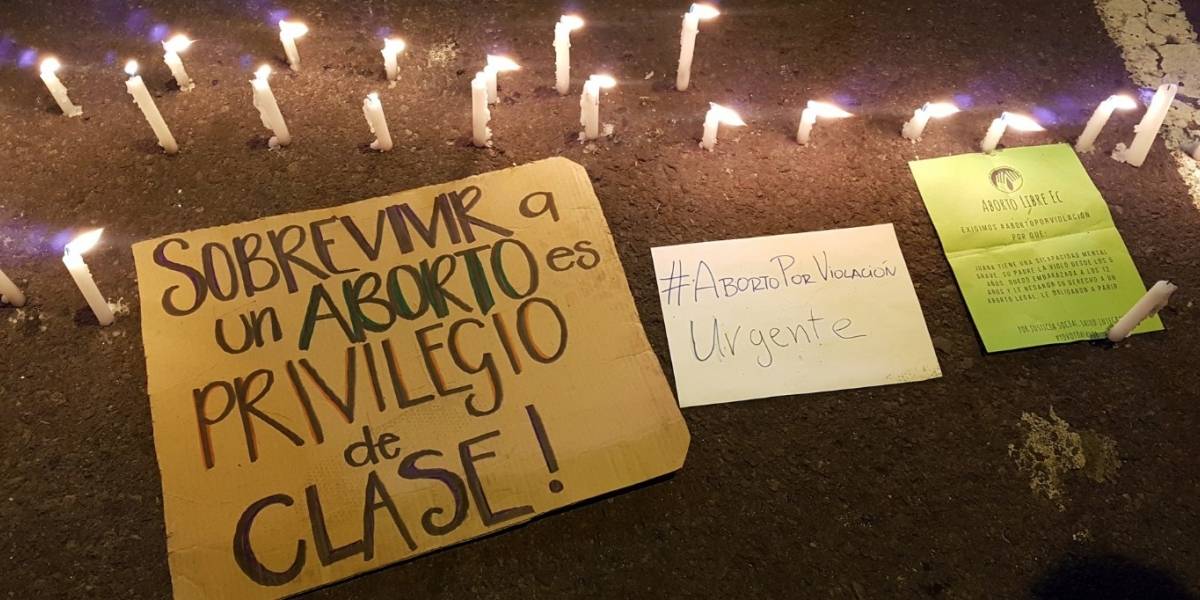 SOBREVIVIR a
un ABORTO es
PRIVILEGIO
de
CLASE!
#ABORTOPORVIOLACIÓN
Urgente
ABORTO LIBRE EC
EXIGIMOS #ABORTOPORVIOLACIÓN
POR QUE:
JUANA TIENE UNA DISCAPACIDAD MENTAL
GRAVE. SU PADRE LA VIOLÓ DESDE LOS
AÑOS. QUEDÓ EMBARAZADA A LOS 12
AÑOS Y LE NEGARON SU DERECHO A UN
ABORTO LEGAL. LE OBLIGARON A PARIR
POR JUSTICIA SOCIAL, SALUD